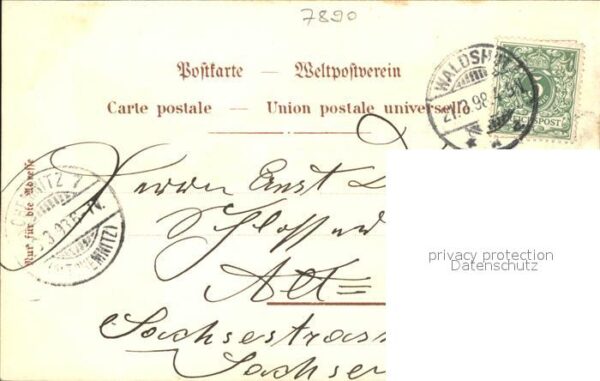 7890
Postkarte — Weltpostverein
Carte postale — Union postale universelle
WALDSHUT
5
REICHSPOST
Nur für die Adresse
CHEMNITZ 7
(ALTCHEMNITZ)
Herrn Ernst
Schlosser
Alt=
Sachsestrass
Sachsen
privacy protection
Datenschutz